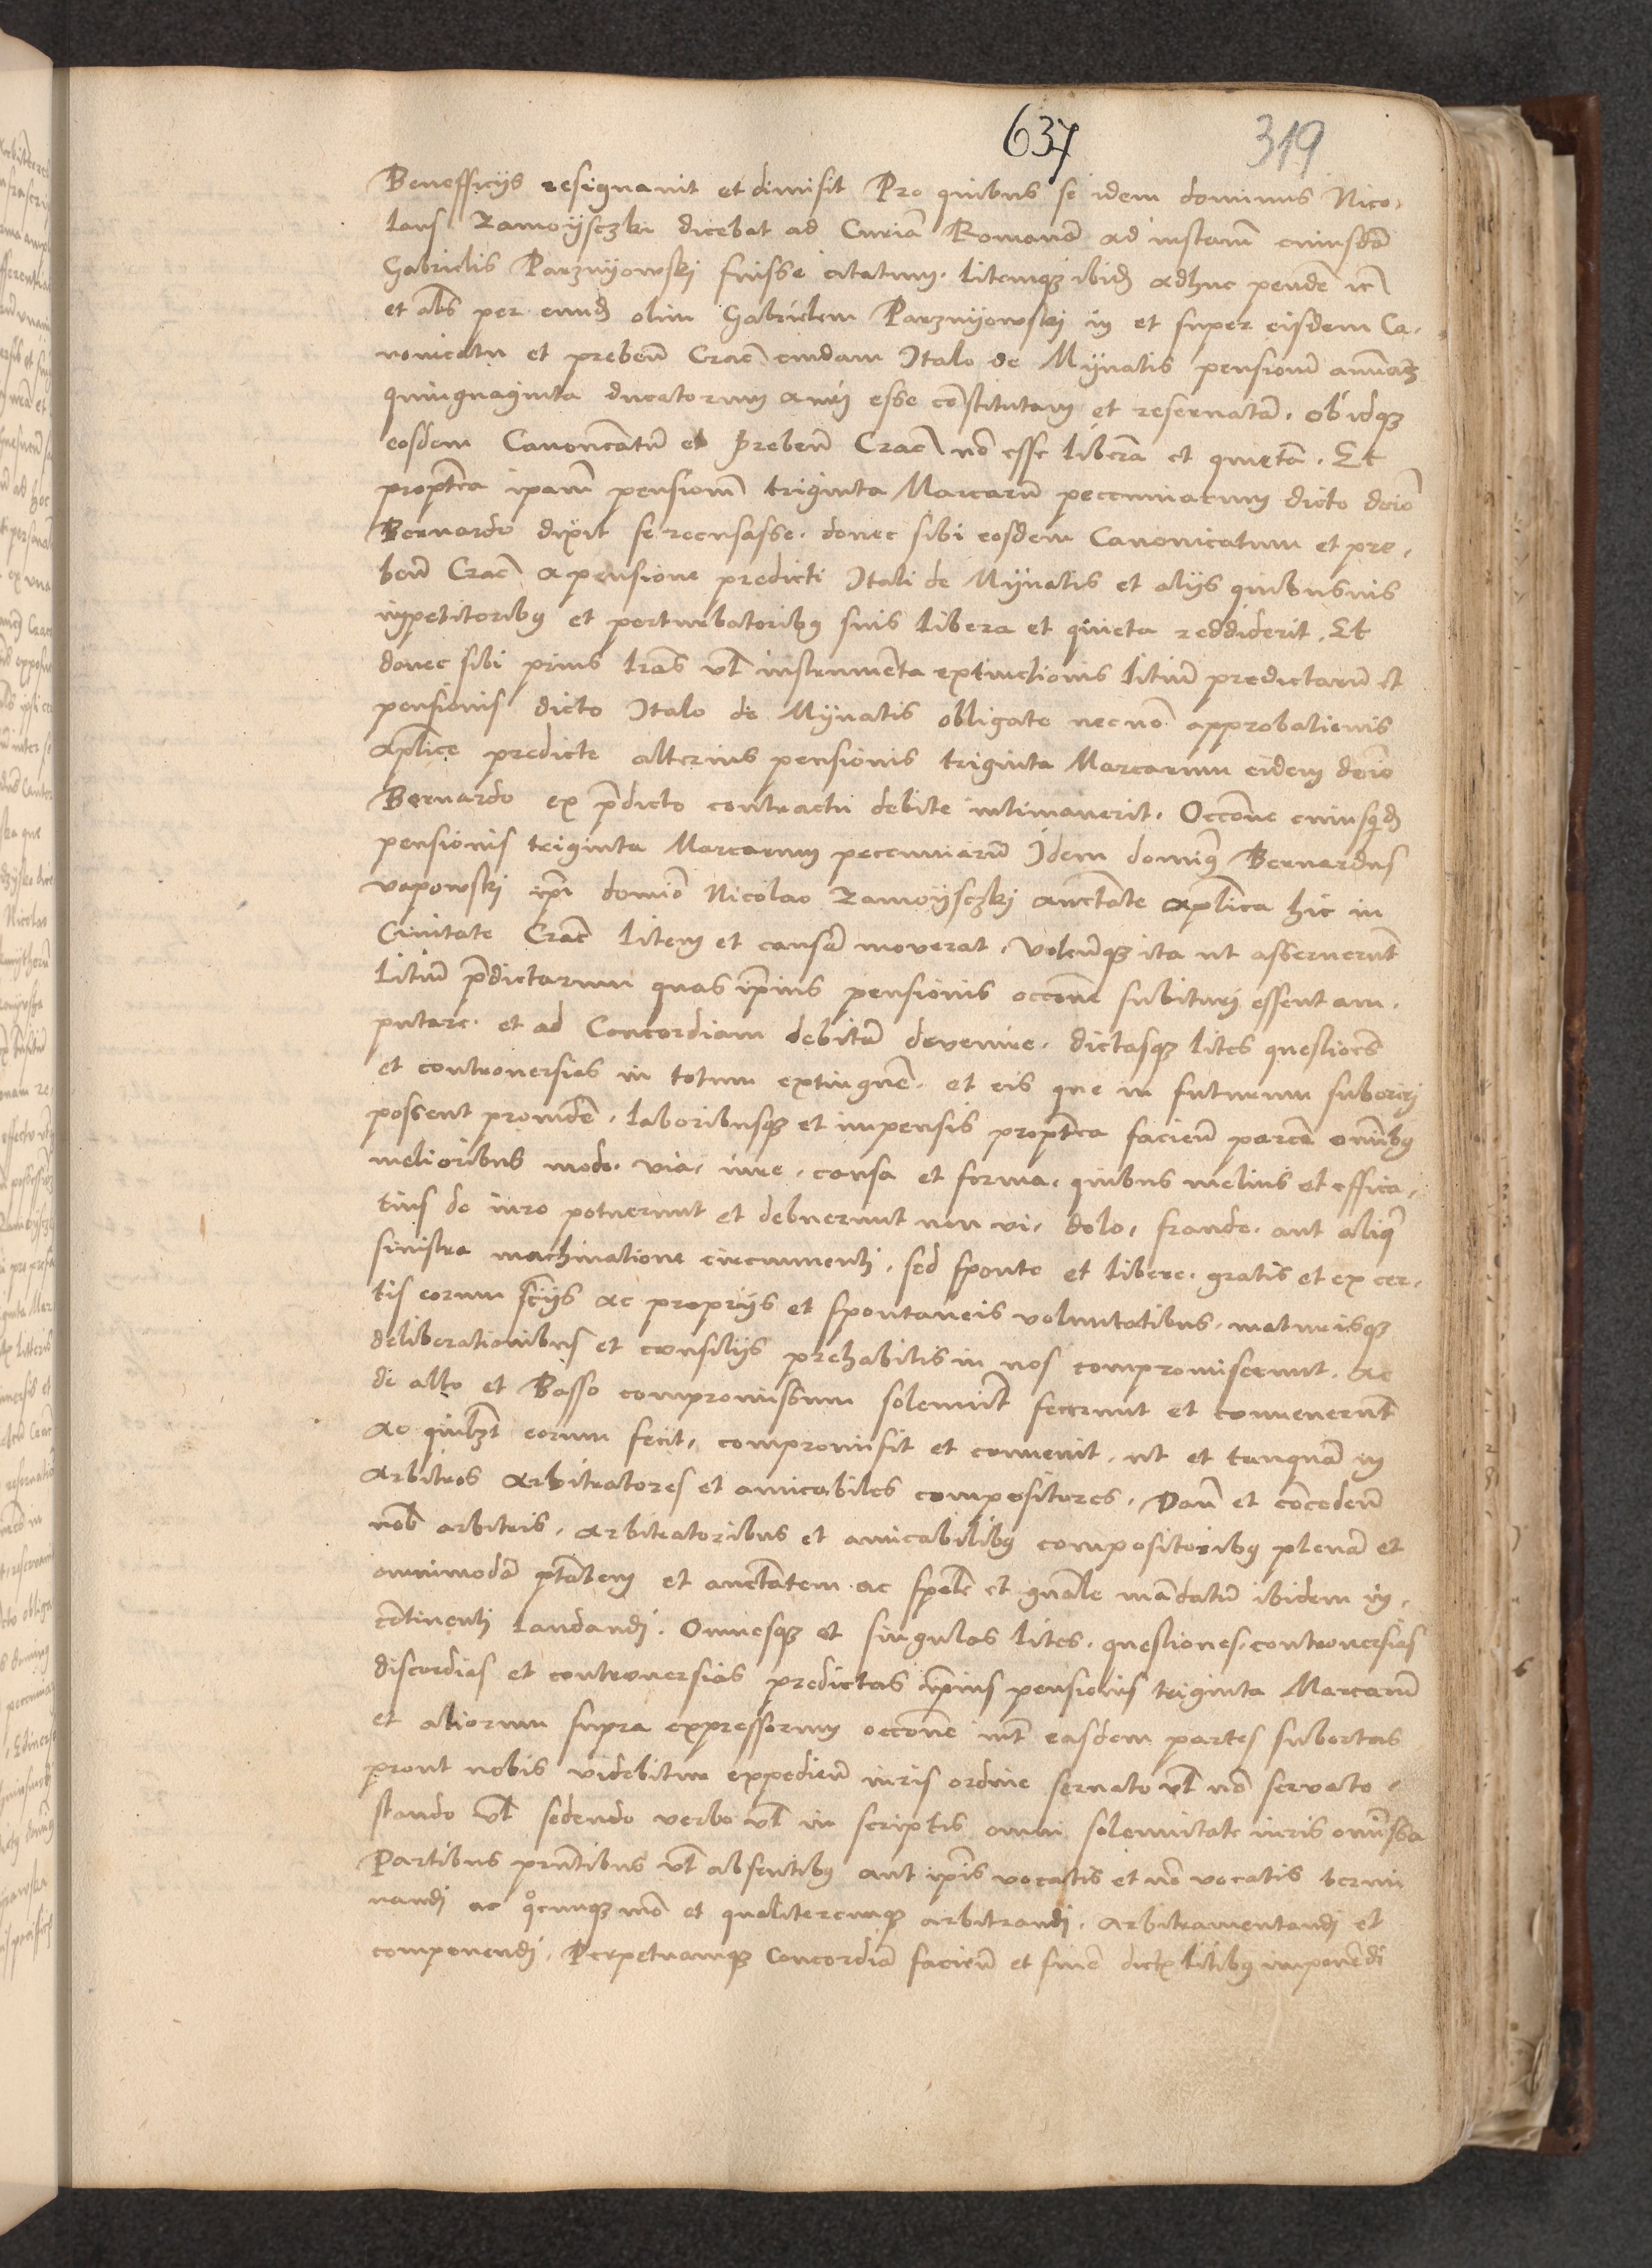 637 319
Benefficijs resignavit et dimisit Pro quibus se idem dominus Nico-
laus Zamoÿsczki dicebat ad Curiā Romanā ad instantiā cuiusdā
Gabrielis Parznÿowski fuisse citatum. litemqȝ ibidē adhuc pendē
et als per eundē olim Gabrielem Parznÿowskj in et super eisdem Ca-
nonicatu et prebeñ Crac̄ cuidam Italo de Mÿnatis pensionē annuā
quinquaginta ducatorum aurj esse cōstitutam et reservatā. ob idqȝ
eosdem Canoncatū et prebeñ Crac̄ nō esse liberā et quietā. Et
propterea ipam pensionē triginta Marcarū peccuniarum dicto dnīo
Bernardo dixit se recusasse. donec sibi eosdem Canonicatum et pre-
beñ Crac̄ a pensione predicti Itali de Mÿnatis et alijs quibusuis
impetitoribꝫ et perturbatoribꝫ suis libera et quieta reddiderit. Et
donec sibi prius lrās vl̄ instrumēta extinctionis litiū predictarū et
pensionis dicto Italo de Mÿnatis obligate necnō approbationis
aplice predicte alterius pensionis triginta Marcarum eidem dnīo
Bernardo ex p̄dicto contractu debite intimaverit. Occōne cuiusqdē
pensionis triginta Marcarum peccuniarū Idem dominꝫ Bernardus
vapowski ipī dominō Nicolao Zamoÿsczkj auctāte aplica hic in
Civitate Crac̄ litem et causā moverat. Volentesqȝ ita ut asseruerūt
litiū p̄dictarum quas ipius pensionis occōne subiturj essent am-
putare. et ad Concordiam debitā devenire. dictasqȝ lites questiones
et controversias in totum extinguē. et eis que in futurum suborirj
possent providē. laboribusqȝ et impensis propterea facieñ parcē omībꝫ
melioribus modo. via. iure. causa et forma. quibus melius et effica-
tius de iure potuerunt et debuerunt non vi. dolo. fraude. aut aliqā
sinistra machinatione circumventj. sed sponte et libere. gratis et ex cer-
tis eorum sciijs ac proprijs et spontaneis voluntatibus. maturisqȝ
deliberationibus et consilijs prehabitis in nos compromiserunt. ac
de alto et Basso compromissum solemnit fecerunt et convenerunt
ac quilibꝫt eorum fecit. compromisit et convenit. ut et tanquā in
Arbitros arbitratores et amicabiles compositores. Dañ et cōcedeñ
nob̄ arbitris. arbitratoribus et amicabilibꝫ compositoribꝫ plenā et
omnimodā ptātem et auctātem. ac spāle et gnāle mādatū ibidem in-
cōtinenti laudandj. Omnesqȝ et singulas lites. questiones. controversias
discordias et controversias predictas ipius pensionis triginta Marcarū
et aliorum supra expressorum occōne int̄ easdem partes subortas
prout nobis videbitur expedieñ iuris ordine servato vl̄ nō servato.
stando vl̄ sedendo verbo vl̄ in scriptis omni solennitate iuris omissa
Partibus pn̄tibus vl̄ absentibꝫ aut ipīs vocatis et nō vocatis termi
nandj ac qōcunqȝ mō et qualitercunqȝ arbitrandj. arbitramentandj et
componendj. Perpetuamqȝ Concordiā facieñ et finē dictꝫ litibꝫ imponēdi